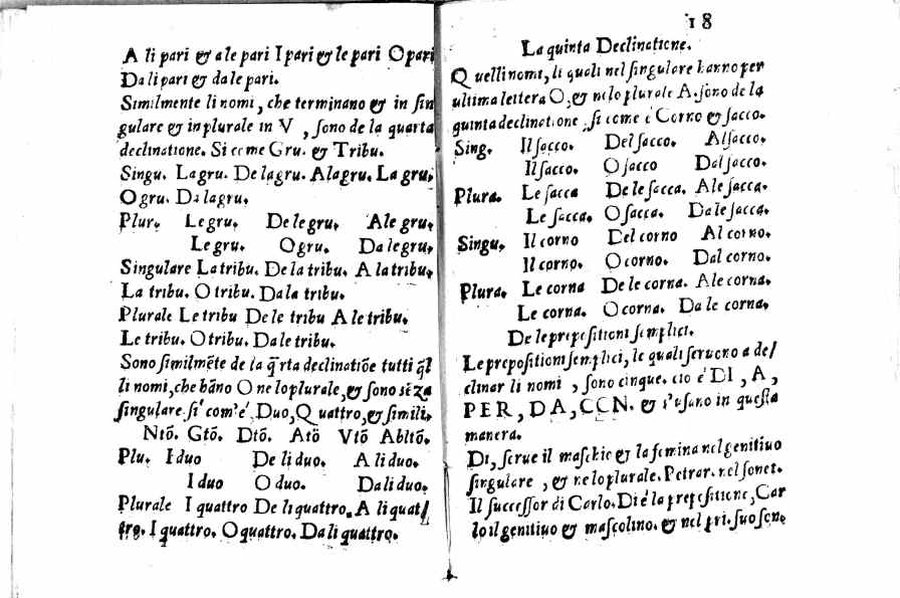 A li pari & a le pari I pari & le pari O pari
Da li pari & da le pari.
Similmente li nomi, che terminano & in ſin
gulare & in plurale in V, ſono de la quarta
declinatione. Si come Gru. & Tribu.
Singu. La gru. De la gru. A la gru. La gru,
O gru. Da la gru.
Plur. Le gru. De le gru. A le gru,
Le gru. O gru. Da le gru,
Singulare La tribu. De la tribu. A la tribu,
La tribu. O tribu. Da la tribu.
Plurale Le tribu De le tribu A le tribu.
Le tribu. O tribu. Da le tribu.
Sono ſimilmẽte de la q̃rta declinatiõe tutti q̃l
li nomi, che hãno O ne lo plurale, & ſono sẽza
ſingulare ſi com'é, Duo, Quattro, & ſimili.
Ntõ. Gtõ. Dtõ. Atõ Vtõ Abltõ.
Plu. I duo De li duo. A li duo.
I duo O duo. Da li duo.
Plurale I quattro De li quattro. A li quat/
tro. I quattro. O quattro. Da li quattro.
18
La quinta Declinatione.
Quelli nomi, li quali nel ſingulare hanno per
ultima lettera O, & ne lo plurale A. ſono de la
quinta declinatione, ſi come è Corno & ſacco.
Sing. Il ſacco. Del ſacco. Al ſacco.
Il ſacco. O ſacco Dal ſacco.
Plura. Le ſacca De le ſacca. A le ſacca.
Le ſacca. O ſacca. Da le ſacca.
Singu. Il corno Del corno Al corno.
Il corno. O corno. Dal corno.
Plura. Le corna De le corna. A le corna.
Le corna. O corna. Da le corna.
De le prepoſitioni ſemplici.
Le prepoſitioni ſemplici, le quali ſeruno a de/
clinar li nomi, ſono cinque. cio é DI, A,
PER, DA, CON. & s'uſano in queſta
manera.
Di, ſerue il maſchio & la femina nel genitiuo
ſingulare, & ne lo plurale. Petrar. nel ſonet.
Il ſucceſſor di Carlo. Di è la prepoſitione, Car
lo il genitiuo & maſcolino. & nel pri. ſuo ſon,